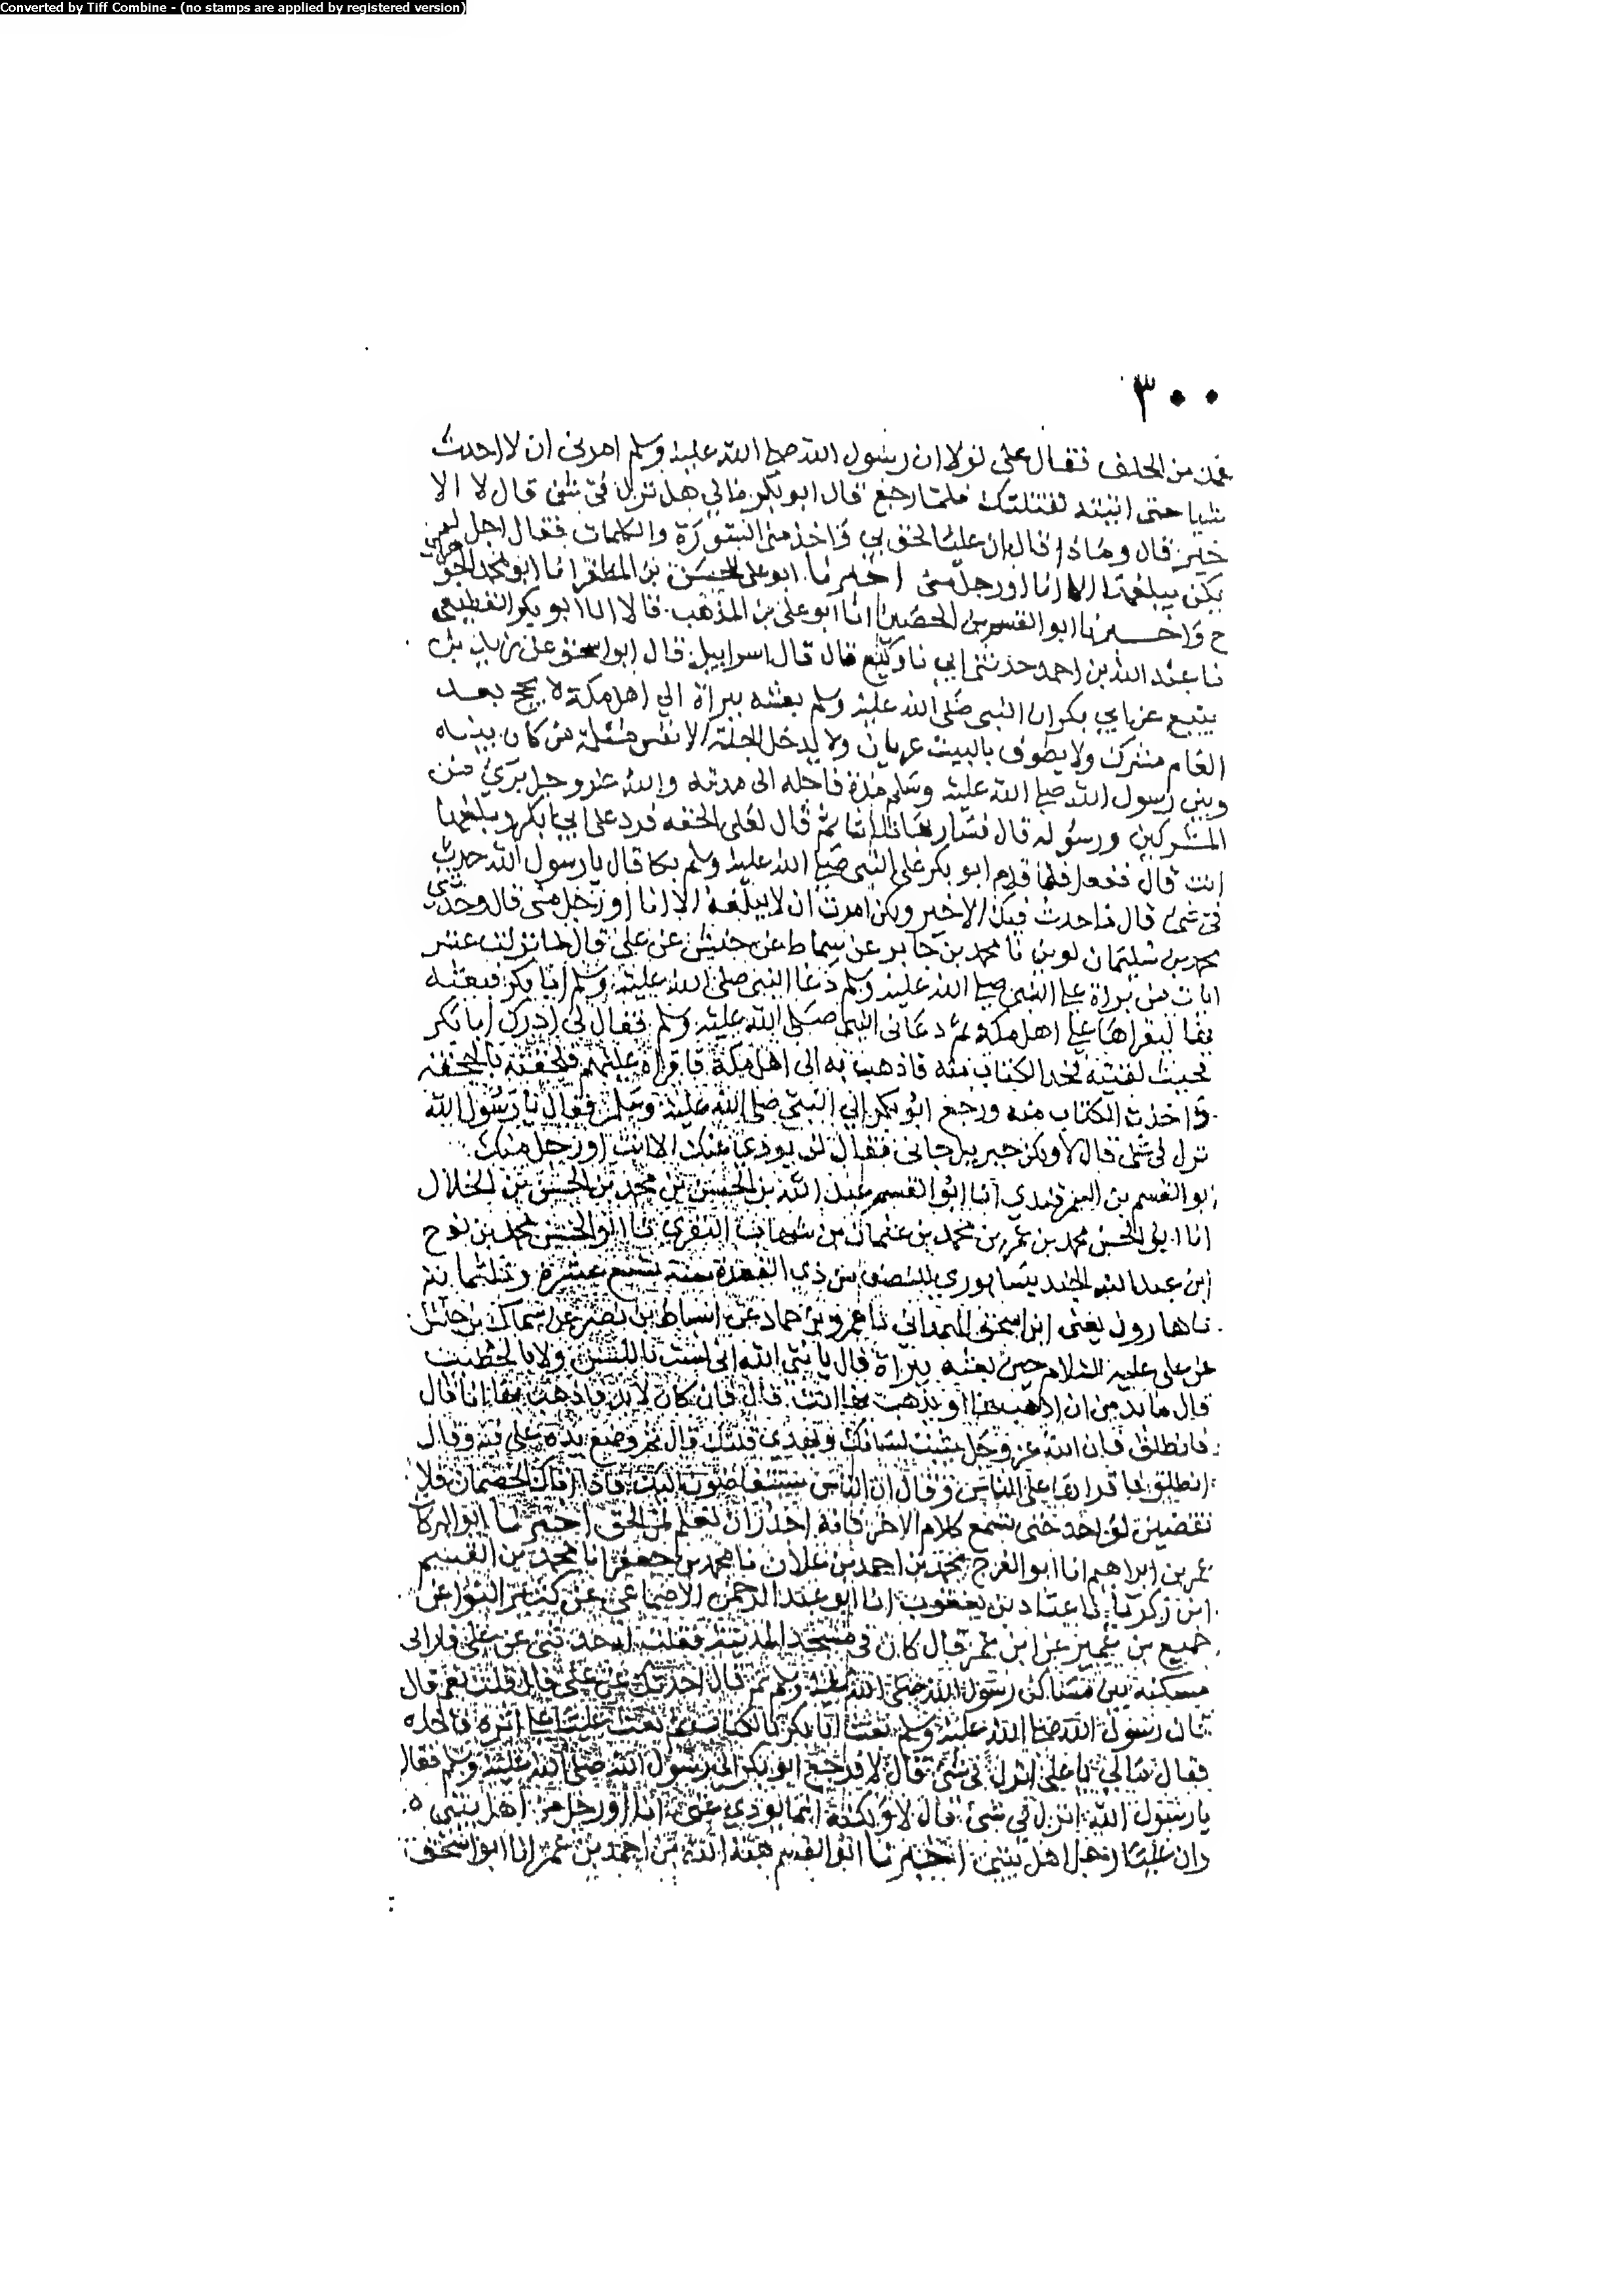 Converted by Tiff Combine - (no stamps are applied by registered version)
٣٠٠
عمد من الحلف فقال على لولا ان رسول الله صلى الله عليه وسلم امرنى ان لا احدث
شيا حتى اتيته لقتلتك فلما رجع قال ابو بكر مالي هل نزل فى شى قال لا الا
خير قال وماذا قال ان عليا لحق بي فاخذ منى السورة والكلمات فقال اجل لم
يكن يبلغها الا انا او رجل منى اخبرنا ابو على الحسن بن المظفر انا ابو محمد الجوهرى
ح واخبرنا ابو القسم بن الحصين انا ابو على بن المذهب قالا انا ابو بكر القطيعي
نا عبد الله بن احمد حدثنى ابي نا وكيع قال قال اسراييل قال ابو اسحق عن زيد بن
يثيع عن ابي بكر ان النبى صلى الله عليه وسلم بعثه ببراة الي اهل مكة لا يحج بعد
العام مشرك ولا يطوف بالبيت عريان ولا يدخل الجنة الا نفس مسلمة من كان بينه
وبين رسول الله صلى الله عليه وسلم مدة فاجله الى مدته والله عز وجل برئ من
المشركين ورسوله قال فسار بها ثلاثا ثم قال لعلى الحقه فرد على ابا بكر وبلغها
انت قال ففعل فلما قدم ابو بكر على النبى صلى الله عليه وسلم بكا قال يا رسول الله حدث
فى شئ قال ما حدث فيك الا خير ولكن امرت ان لا يبلغه الا انا او رجل منى قال وحدثنى
محمد بن سليمان لوين نا محمد بن جابر عن سماك عن حنش عن على قال لما نزلت عشر
ايات من براة على النبى صلى الله عليه وسلم دعا النبى صلى الله عليه وسلم ابا بكر فبعثه
بها ليقراها على اهل مكة ثم دعانى النبى صلى الله عليه وسلم فقال لى ادرك ابا بكر
فحيث لقيته فخذ الكتاب منه فاذهب به الى اهل مكة فاقراه عليهم فلحقته بالجحفة
فاخذت الكتاب منه ورجع ابو بكر الى النبى صلى الله عليه وسلم فقال يا رسول الله
نزل فى شى قال لا ولكن جبريل جانى فقال لن يودى عنك الا انت او رجل منك
ابو القسم بن السمرقندي انا ابو القسم عبد الله بن الحسن بن محمد بن الحسن بن الخلال
انا ابو الحسن محمد بن عمر بن محمد بن عثمان بن شهاب النفري نا ابو الحسن محمد بن نوح
ابن عبد الله الجنديسابوري للنصف من ذي القعدة سنة تسع عشرة وثلثماية
نا هارون يعنى ابن اسحق الهمداني نا عمرو بن حماد عن اسباط بن نصر عن سماك بن حنش
عن على عليه السلام حين بعثه ببراة قال يا نبى الله انى لست باللسن ولا بالخطيب
قال ما بد من ان اذهب بها او تذهب بها انت قال فان كان لا بد فاذهب بها انا قال
فانطلق فان الله عز وجل يثبت لسانك ويهدى قلبك قال ثم وضع يده على فيه وقال
انطلق فاقراها على الناس وقال ان الناس سيتقاضون اليك فاذا اتاك الخصمان فلا
تقضين لواحد حتى تسمع كلام الاخر فانه اجدر ان تعلم لمن الحق اخبرنا ابو البركات
عمر بن ابراهيم انا ابو الفرج محمد بن احمد بن علان نا محمد بن جعفر انا محمد بن القسم
ابن زكريا نا عباد بن يعقوب انا ابو عبد الرحمن عن كثير النوا عن
جميع بن عمير عن ابن عمر قال كان فى مسجد المدينة فقلت له حدثنى عن على فارانى
مسكنه بين مساكن رسول الله صلى الله عليه وسلم ثم قال احدثك عن على قال قلت نعم قال
فان رسول الله صلى الله عليه وسلم بعث ابا بكر بالكتاب ثم بعث عليا على اثره فاخذه
فقال مالي يا على انزل فى شئ قال لا فرجع ابو بكر الى رسول الله صلى الله عليه وسلم فقال
يا رسول الله انزل فى شئ قال لا ولكنه انما يودي عنى انا او رجل من اهل بيتى ٥
وان عليا رجل اهل بيتى اخبرنا ابو القسم هبة الله بن احمد بن عمر انا ابو اسحق